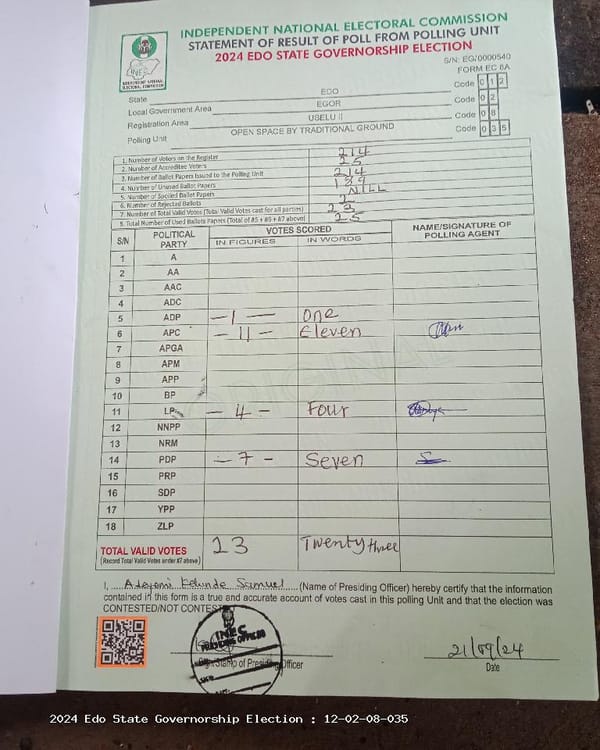 INDEPENDENT NATIONAL ELECTORAL COMMISSION
STATEMENT OF RESULT OF POLL FROM POLLING UNIT
2024 EDO STATE GOVERNORSHIP ELECTION
S/N: EG/0000540
FORM EC 8A
INEC
INDEPENDENT NATIONAL ELECTORAL COMMISSION
State EDO Code 0 1 2
Local Government Area EGOR Code 0 2
Registration Area USELU II Code 0 8
Polling Unit OPEN SPACE BY TRADITIONAL GROUND Code 0 3 5
1. Number of Voters on the Register 214
2. Number of Accredited Voters 25
3. Number of Ballot Papers Issued to the Polling Unit 214
4. Number of Unused Ballot Papers 189
5. Number of Spoiled Ballot Papers NILL
6. Number of Rejected Ballots 2
7. Number of Total Valid Votes (Total Valid Votes cast for all parties) 23
8. Total Number of Used Ballots Papers (Total of #5 + #6 + #7 above) 25
S/N POLITICAL PARTY VOTES SCORED NAME/SIGNATURE OF POLLING AGENT
IN FIGURES IN WORDS
1 A
2 AA
3 AAC
4 ADC
5 ADP -1- One
6 APC -11- Eleven
7 APGA
8 APM
9 APP
10 BP
11 LP -4- Four
12 NNPP
13 NRM
14 PDP -7- Seven
15 PRP
16 SDP
17 YPP
18 ZLP
TOTAL VALID VOTES 23 Twenty three
(Record Total Valid Votes under #7 above)
I, Kehinde Samuel (Name of Presiding Officer) hereby certify that the information
contained in this form is a true and accurate account of votes cast in this polling Unit and that the election was
CONTESTED/NOT CONTEST
INEC
PRESIDING OFFICER
Sign/Stamp of Presiding Officer
21/09/24
Date
2024 Edo State Governorship Election : 12-02-08-035